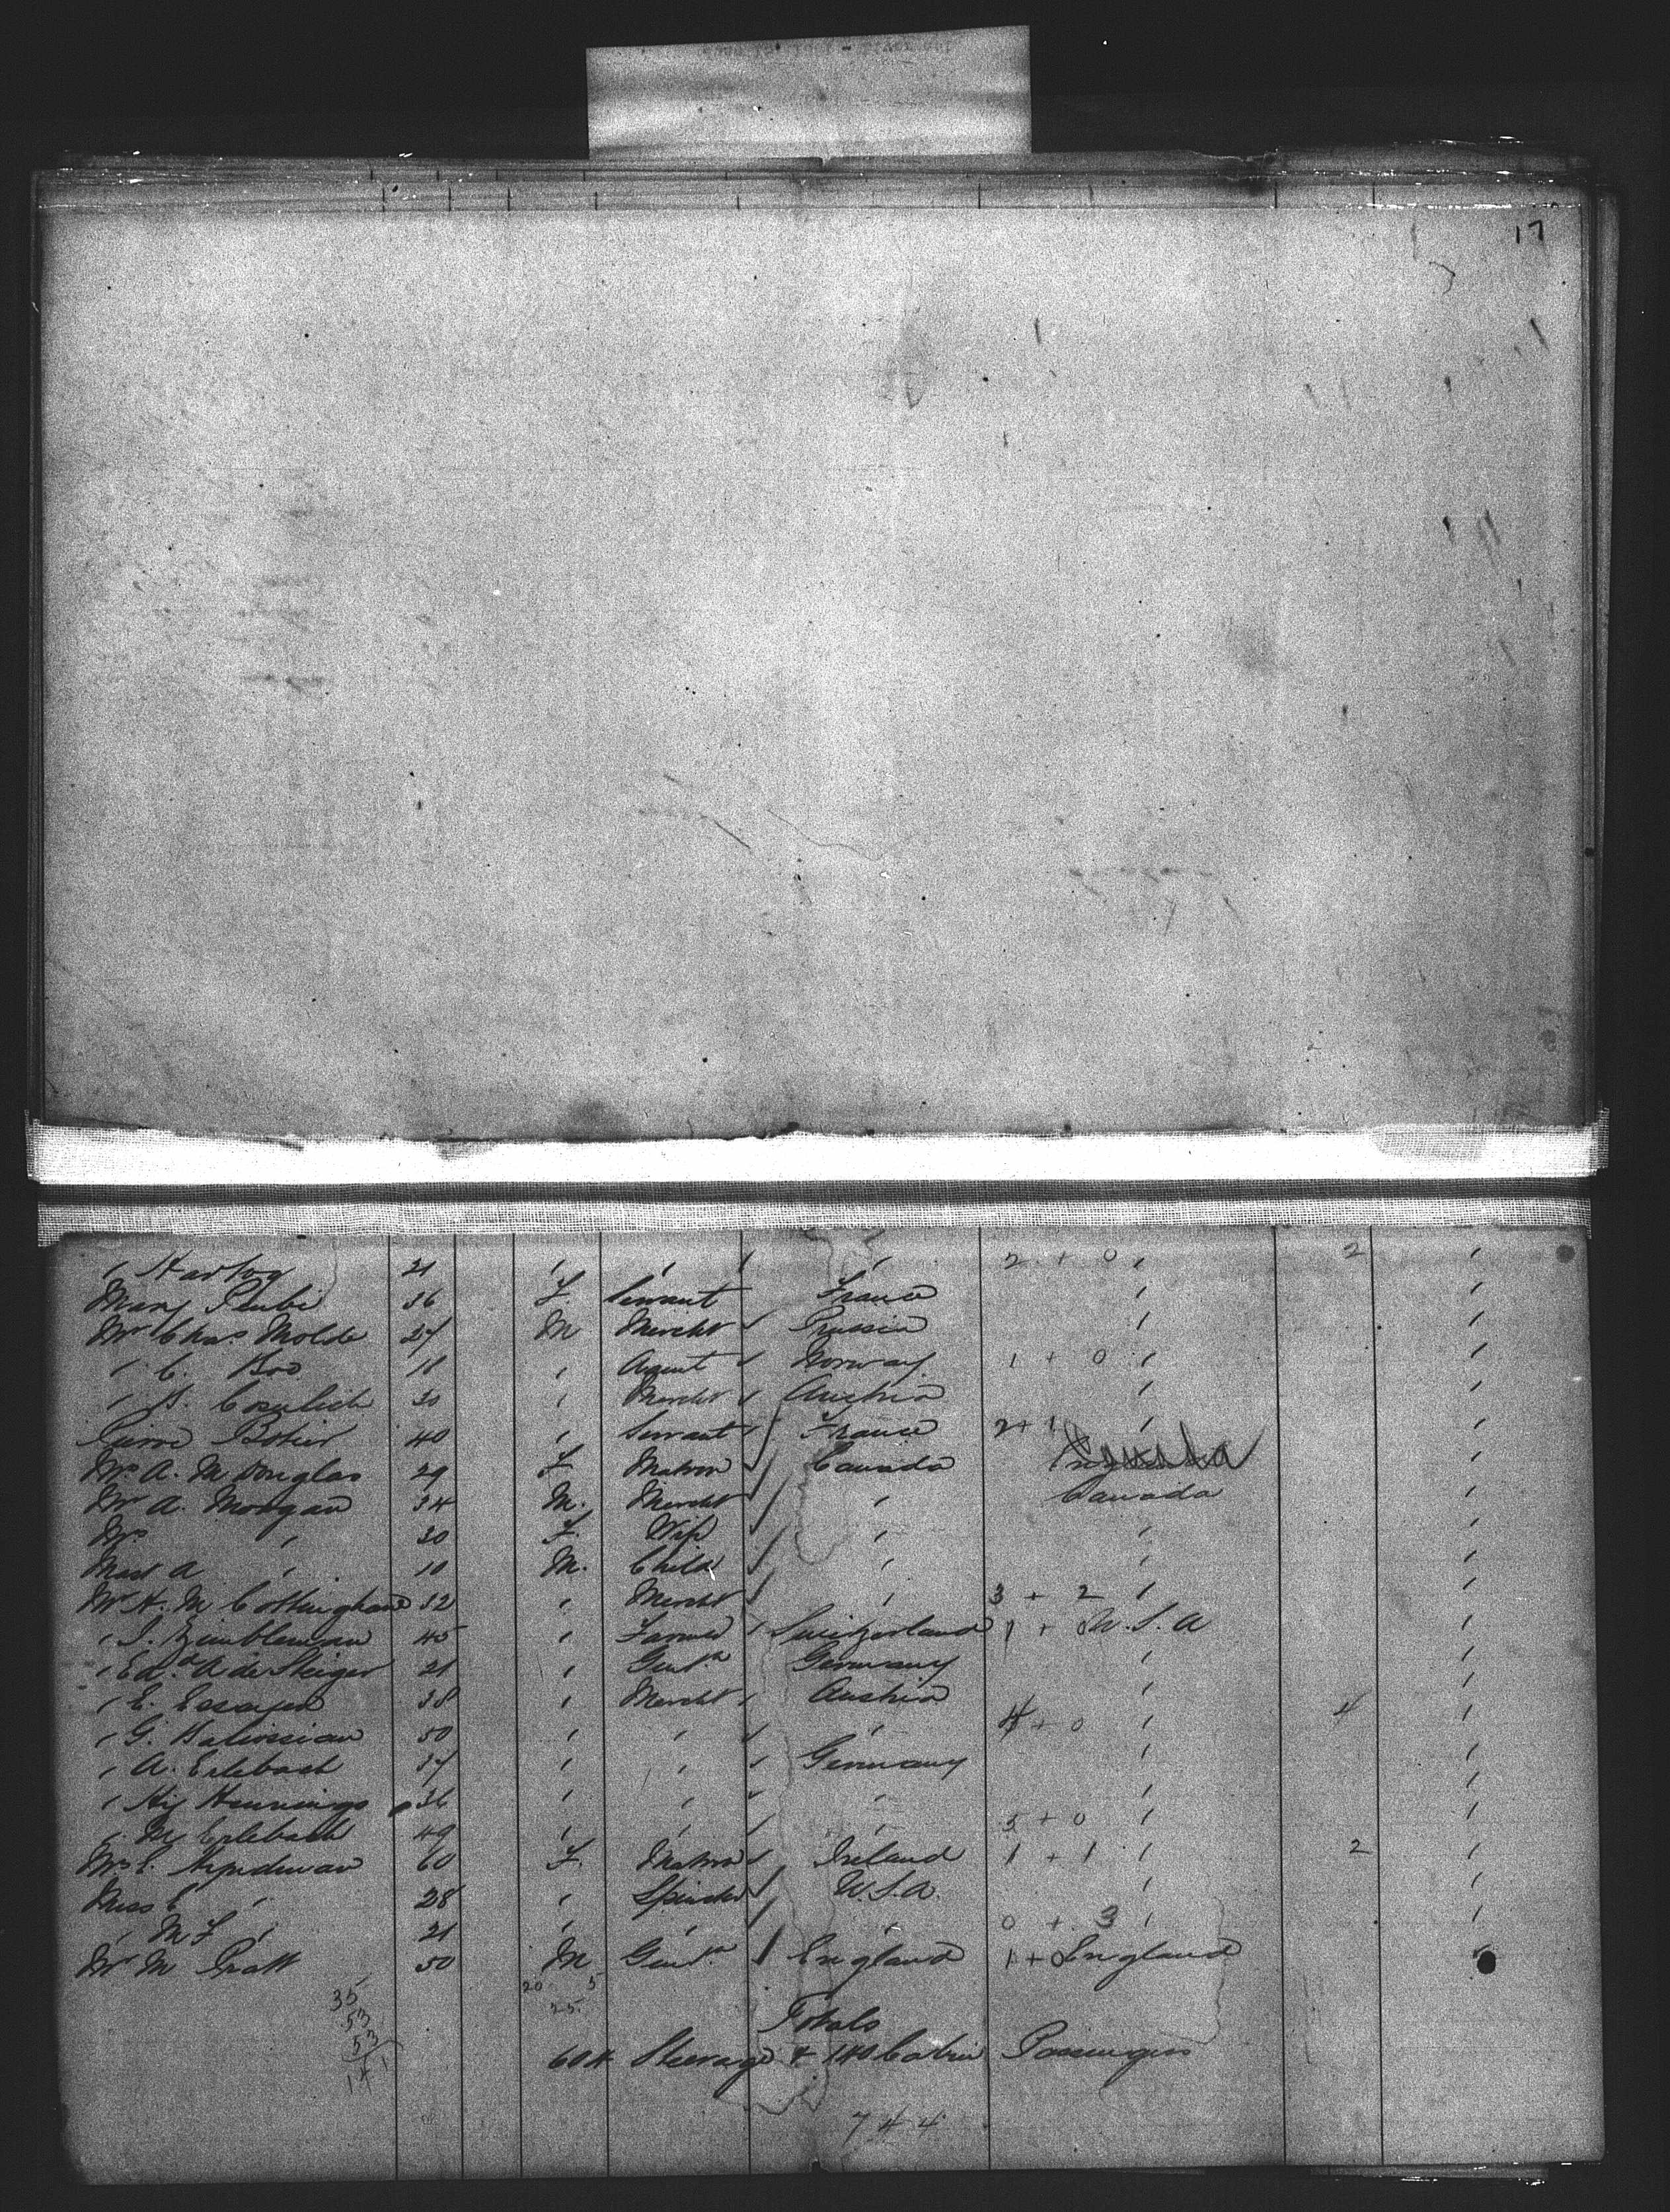 17
" Hartog 21 " " " " 2 + 0 " 2 "
Mary 36 F. Servant France " "
Mr Chas Molde 27 M Mercht Prussia "
" C. Boe 18 " Agent Norway 1 + 0 " "
" B. Cosulich 30 " Mercht Austria " "
Pierre 40 " Servant France 2 + 1 " "
Mrs A. M Douglas 29 F Matron Canada "
Mr A. Morgan 34 M. Mercht " Canada "
Mrs " 30 F. Wife " " "
Mast A " 10 M. Child " " "
Mr H. M Cottingham 32 " Mercht " 3 + 2 " "
" J. Zimbleman 45 " Farmer Switzerland 1 + 0 U.S.A "
" Ed. A de Steiger 21 " Gent. Germany " "
" E. 38 " Mercht Austria " "
" G. 50 " " " 4 + 0 " 4 "
" A. Erlebach 37 " " Germany " "
" Hy Hennings 36 " " " " "
" M Erlebach 49 " " " 5 + 0 " "
Mrs E. Hyndman 60 F. Matron Ireland 1 + 1 " 2 "
Miss E " 28 " Spinster U.S.A. " "
" M F " 21 " " " 0 + 3 " "
Mr M Pratt 50 M Gent. England 1 + 0 England "
20 5
35 25
53 Totals
53
604 Steerage & 140 Cabin Passengers
141
744